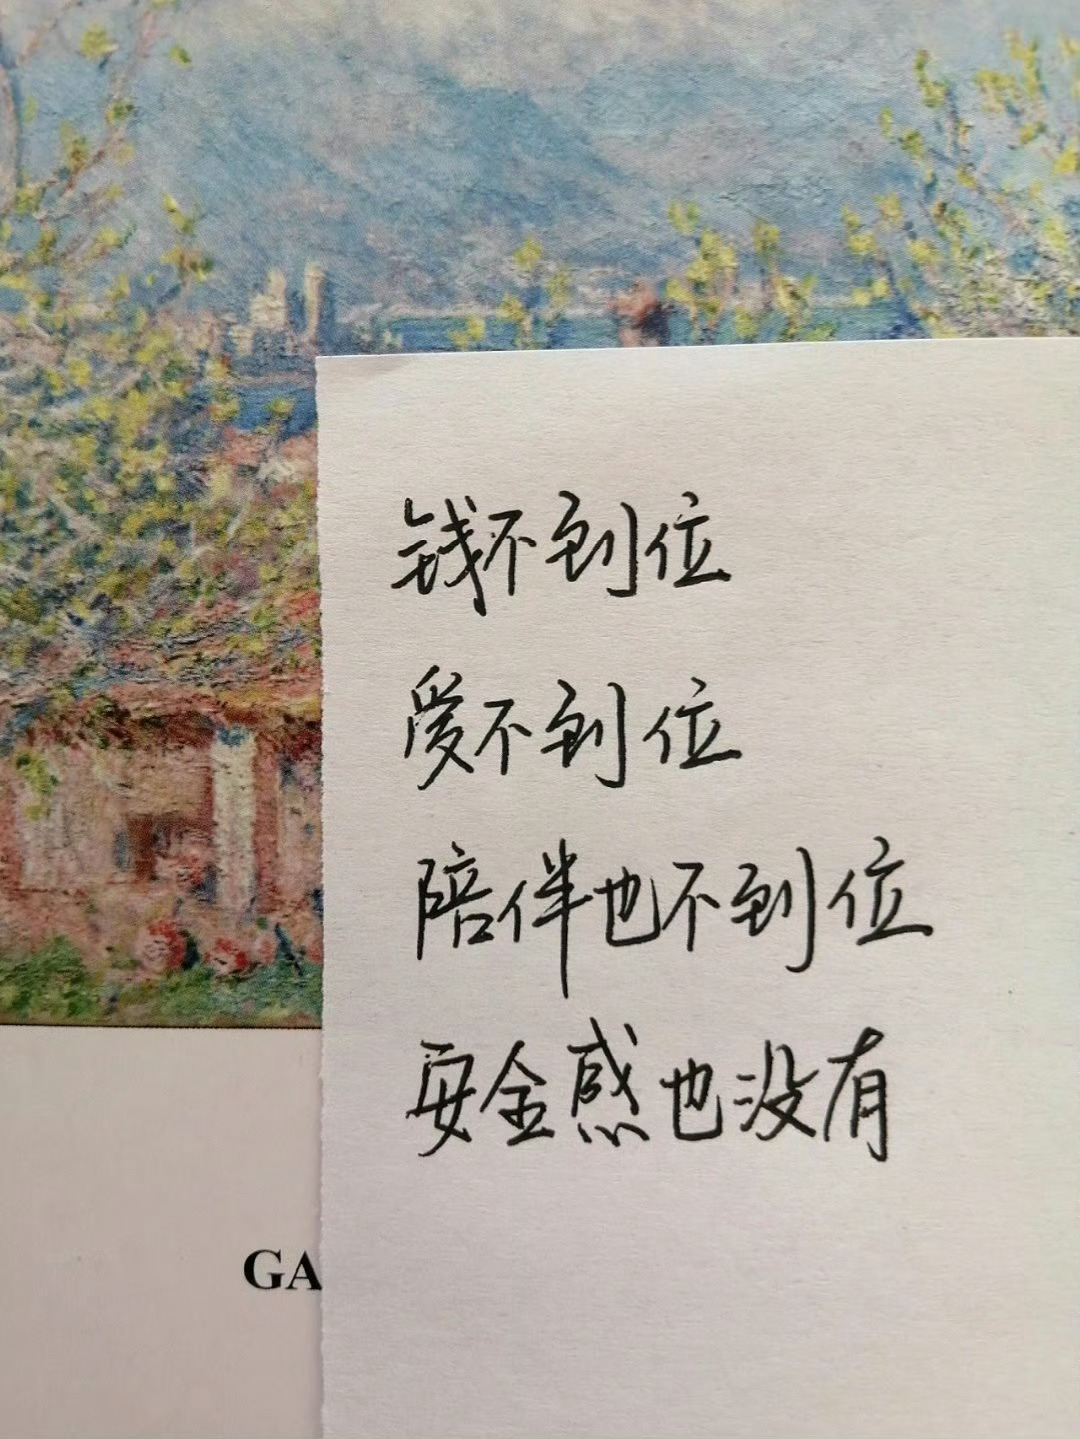 钱不到位
爱不到位
陪伴也不到位
安全感也没有
GA